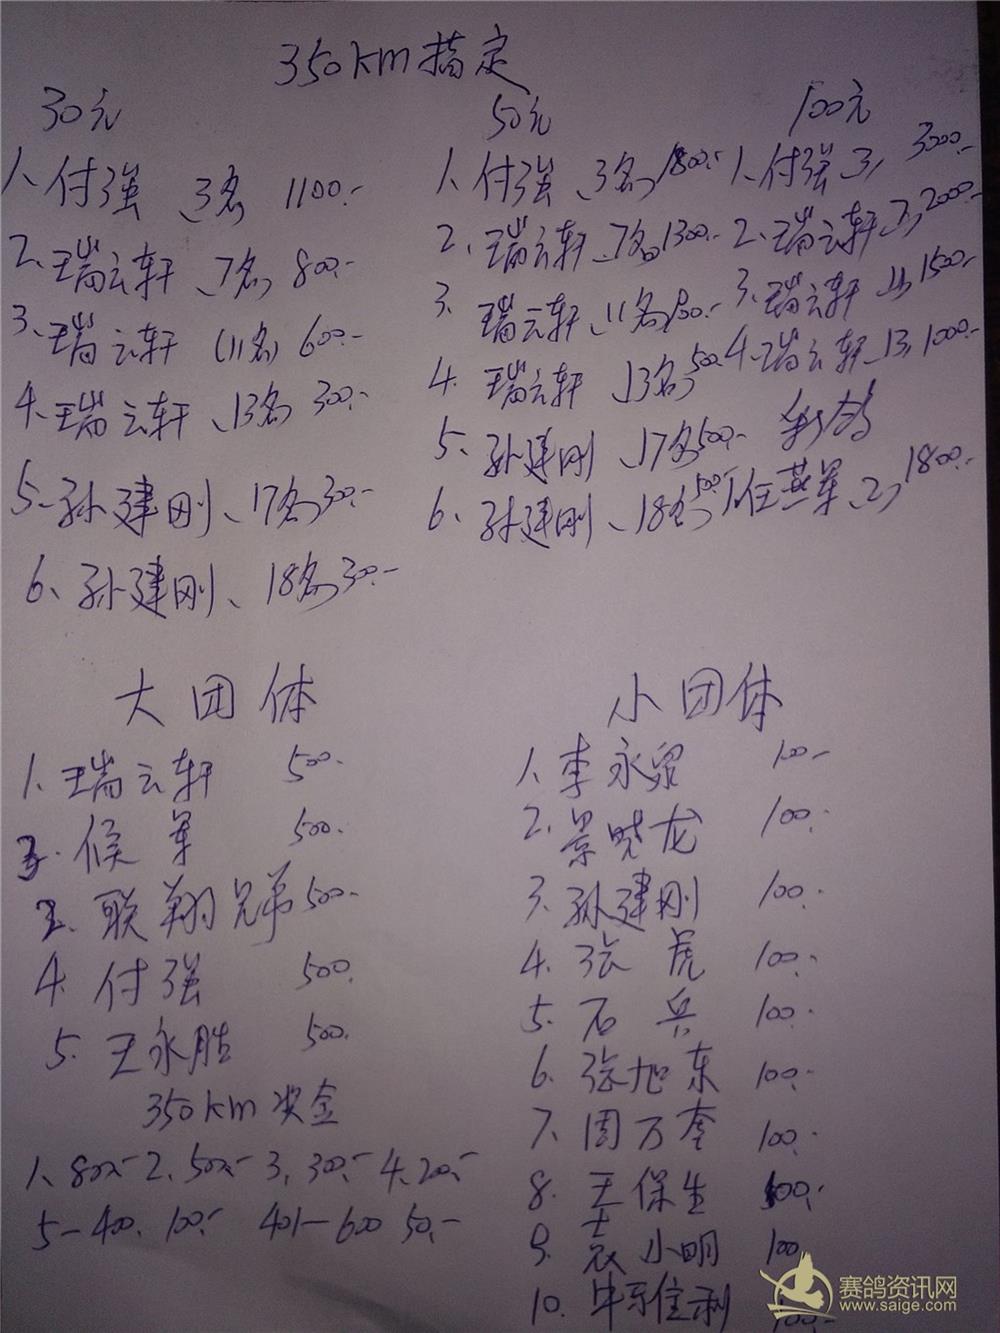 350km指定
30元
1、付强、3名 1100.-
2、瑞云轩、7名 800.-
3、瑞云轩(11名) 600.-
4、瑞云轩、13名 300.-
5、孙建刚、17名 30.-
6、孙建刚、18名 30.-
50元
1、付强、3名 1800.-
2、瑞云轩、7名 1300.-
3、瑞云轩、11名
4、瑞云轩、13名 500.
5、孙建刚、17名 500.-
6、孙建刚、18名 500
100元
1、付强 3, 3000.-
2、瑞云轩 7, 2000.-
3、瑞云轩 11, 1500.-
4、瑞云轩 13, 1000.-
1、任燕军 2, 1800.-
大团体
1、瑞云轩 500.
3. 候军 500.
2. 联翔兄弟 500.-
4. 付强 500.
5. 王永胜 500.
350km奖金
1、800.- 2、500.- 3、300.- 4、200.-
5-400. 100.- 401-600 50.-
小团体
1、李永泉 100.-
2、景晓龙 100.
3、孙建刚 100.-
4、张虎 100.-
5、石兵 100.-
6、张旭东 100.-
7、周万奎 100.-
8. 王保生 100.-
9、袁小明 100.
10. 牛雅佳利 100.-
赛鸽资讯网
www.saige.com